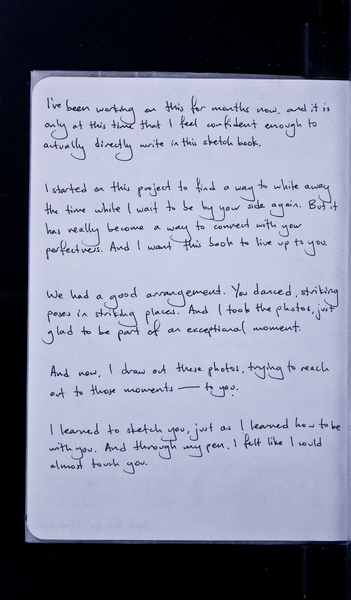 I've been working on this for months now, and it is
only at this time that I feel confident enough to
actually directly write in this sketch book.
I started on this project to find a way to while away
the time while I wait to be by your side again. But it
has really become a way to connect with your
perfectness. And I want this book to live up to you.
We had a good arrangement. You danced, striking
poses in striking places. And I took the photos, just
glad to be part of an exceptional moment.
And now, I draw out these photos, trying to reach
out to those moments — to you.
I learned to sketch you, just as I learned how to be
with you. And through my pen, I felt like I could
almost touch you.